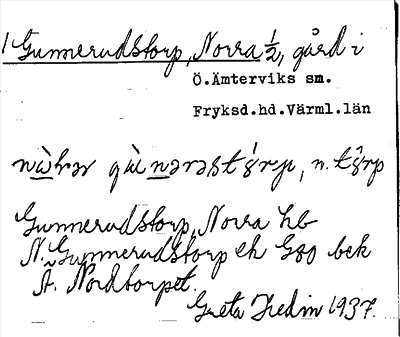 1 Gunnerudstorp, Norra 1/2, gård i
Ö.Ämterviks sn.
Fryksd.hd.Värml.län
Gunnerudstorp, Norra hb
N. Gunnerudstorp ek G80 bek
Å. Nordtorpet.
Greta Hedin 1937.